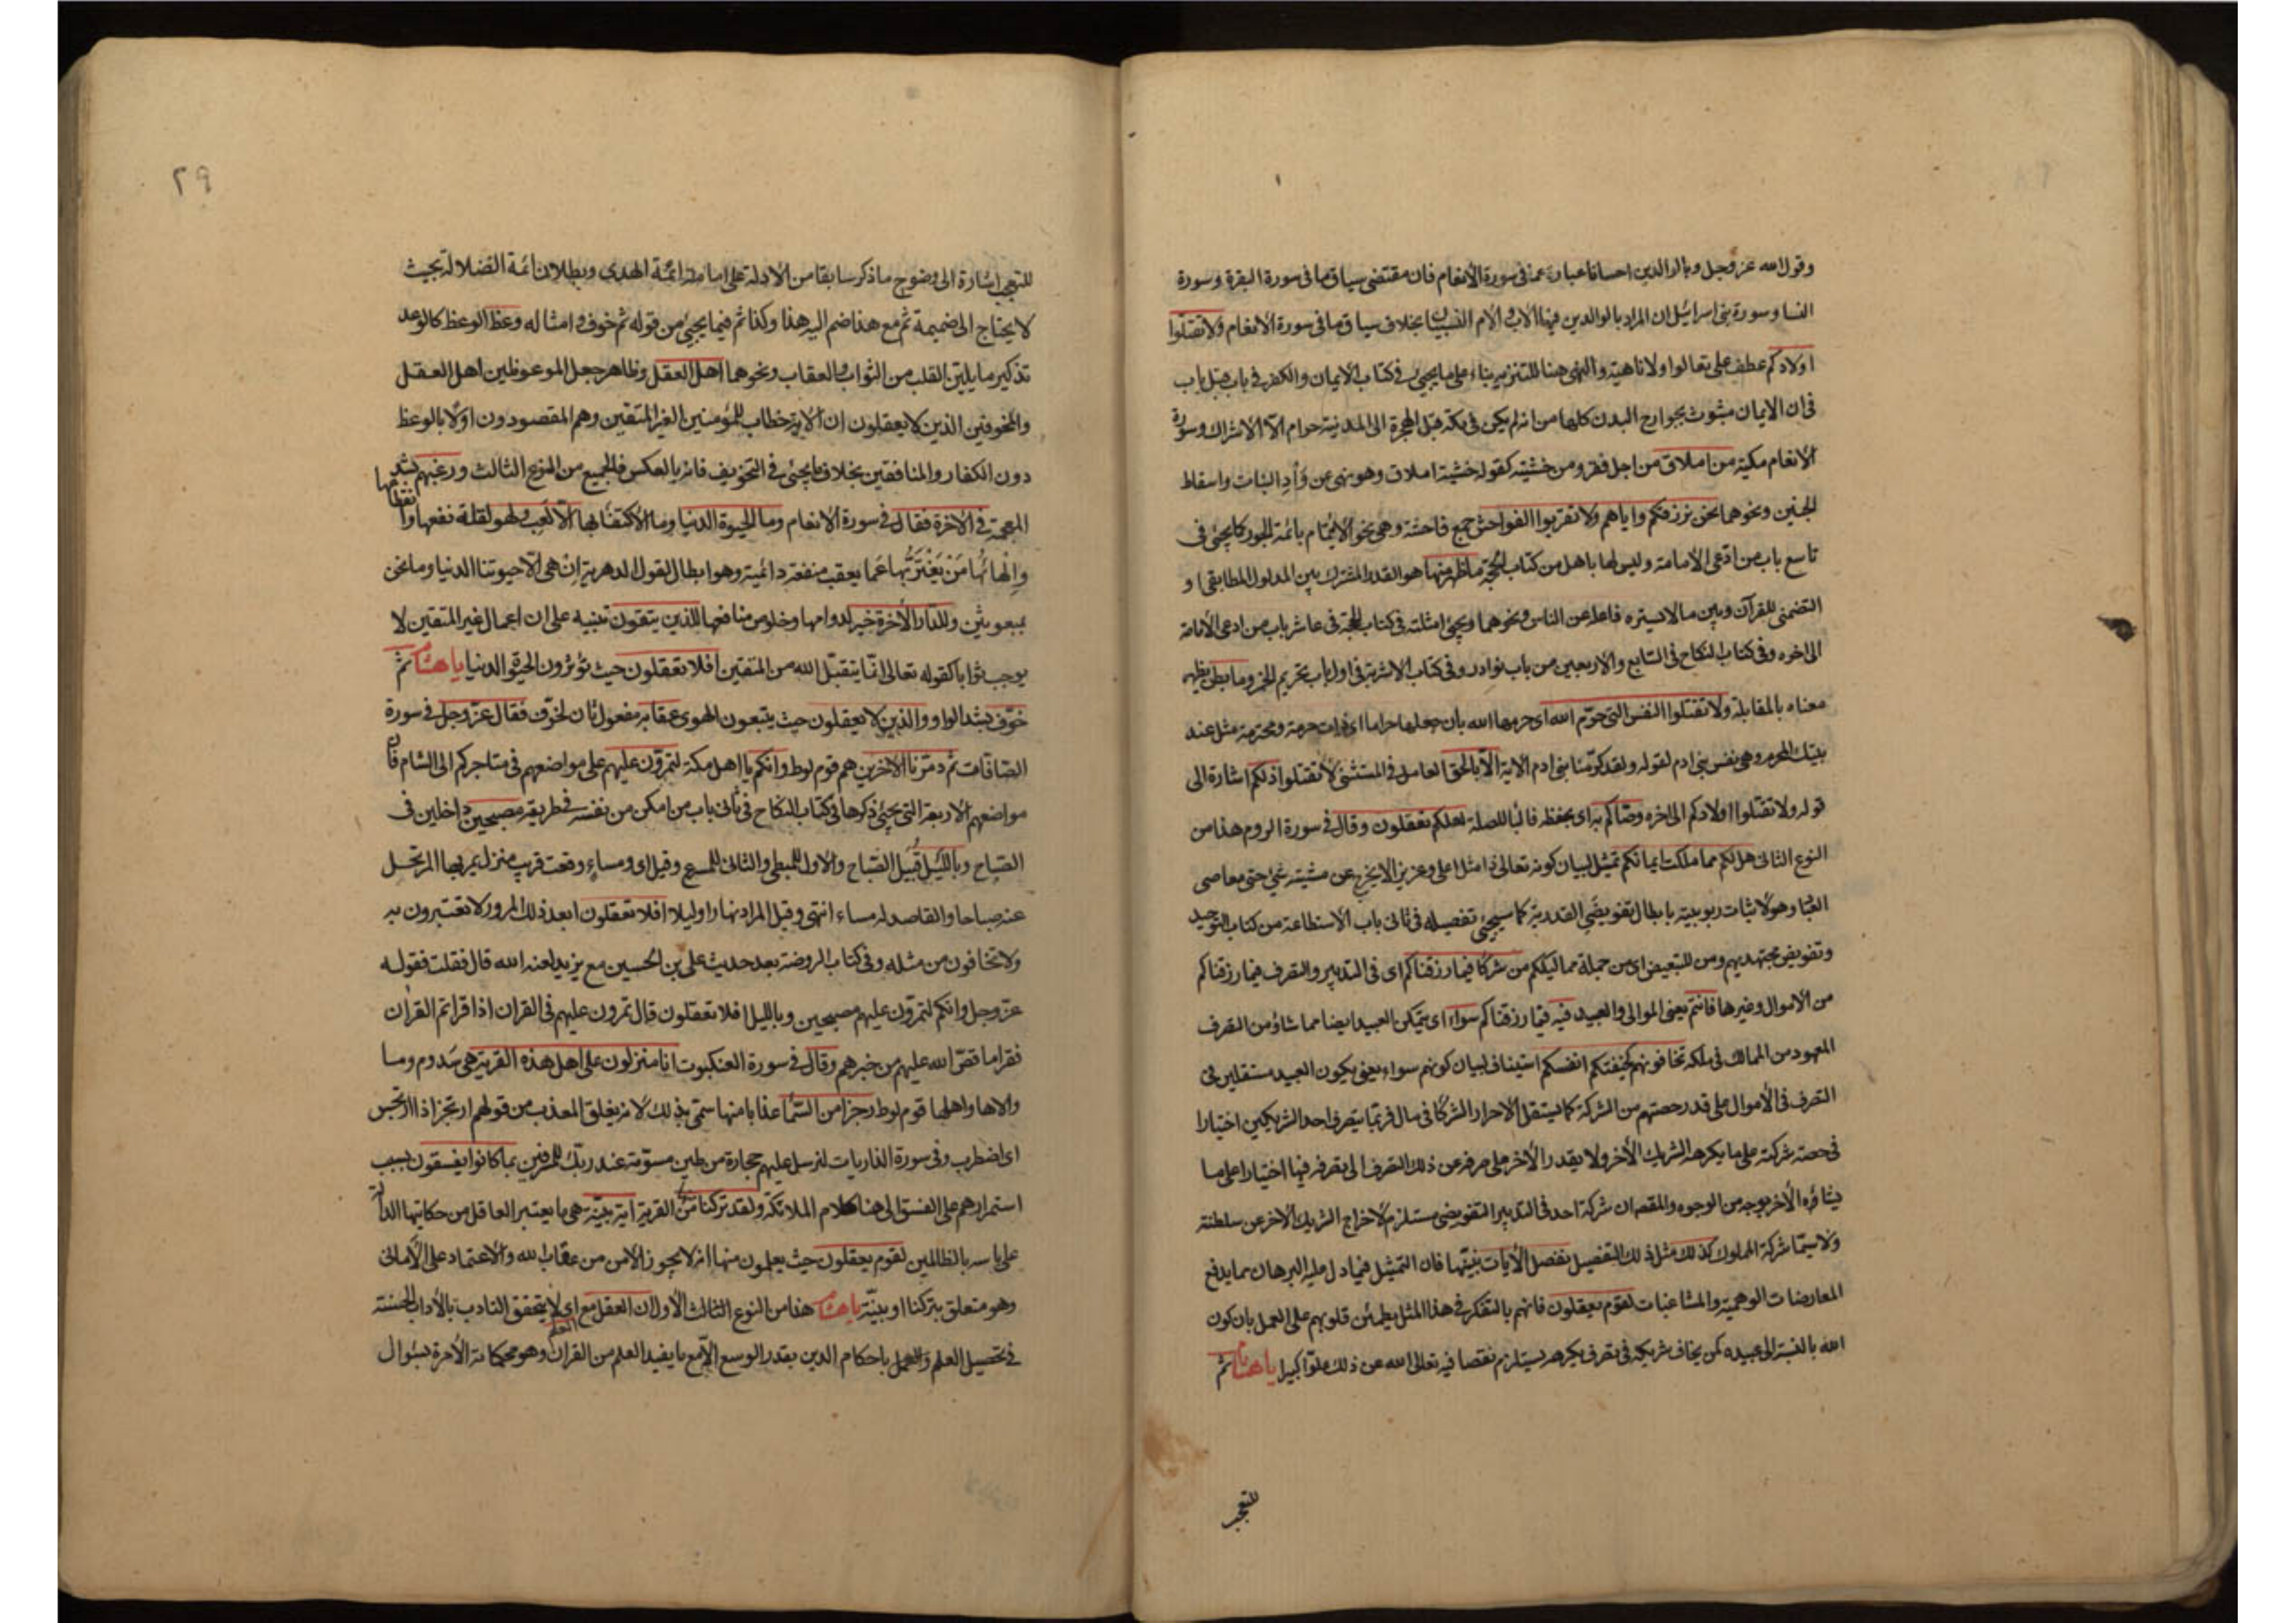 وقول الله عز وجل وبالوالدين احسانا عبارة عنه في سورة الأنعام فان مقتضى سياق ما في سورة البقرة وسورة
النسا وسورة بني اسرائيل ان المراد بالوالدين فيها الأب والأم النسبيان بخلاف سياق ما في سورة الانعام ولا تقتلوا
اولادكم عطف على تعالوا ولا ناهية والنهي هنا للتنزيه بناء على ما يجيئ في كتاب الايمان والكفر في باب قبل باب
في ان الايمان مبثوث بجوارح البدن كلها من انه لم يكن في مكة قبل الهجرة الى المدينة حرام الّا الاشراك وسورة
الانعام مكية من املاق من اجل فقر ومن خشيته كقوله خشية املاق وهو نهي عن وَأدِ البنات واسقاط
الجنين ونحوهما نحن نرزقكم واياهم ولا تقربوا الفواحش جمع فاحشة وهي نحو الائتمام بائمة الجور كما يجيئ في
تاسع باب من ادّعى الأمامة وليس لها باهل من كتاب الحجة ما ظهر منها هو القدر المشترك بين المدلول المطابقي و
التضمني للقرآن وبين ما لا يستره فاعله عن الناس ونحوهما ويجيئ امثلته في كتاب الحجة في عاشر باب من ادعى الأمامة
الى اخره وفي كتاب النكاح في السابع والاربعين من باب نوادر وفي كتاب الاشربة في اول باب تحريم الخمر وما بطن يظهر
معناه بالمقابلة ولا تقتلوا النفس التي حرّم الله اي حرمها الله بان جعلها حراما اي ذات حرمة ومحترمة مثل عند
بيتك المحرم وهي نفس بني ادم لقوله ولقد كرّمنا بني ادم الاية الّا بالحق العامل في المستثنى لا تقتلوا ذلكم اشارة الى
قوله ولا تقتلوا اولادكم الى اخره وصّاكم به اي بحفظه فالبا للصلة لعلكم تعقلون وقال في سورة الروم هذا من
النوع الثاني هل لكم مما ملكت ايمانكم تمثيل لبيان كونه تعالى ذا مثل اعلى وعزيز الا يخرج عن مشيته شيئ حتى معاصي
العباد وهو لاثبات ربوبيته بابطال تفويضَي القدرية كما سيجيئ تفصيله في ثاني باب الاستطاعة من كتاب التوحيد
وتفويض مجتهديهم ومن للتبعيض اي من جملة مماليككم من شركا فيما رزقناكم اي في التدبير والتصرف فيما رزقناكم
من الأموال وغيرها فانتم يعني الموالي والعبيد فيه فيما رزقناكم سواء اي يتمكن العبيد ايضا مما شاؤ من التصرف
المعهود من الممالك في ملكه تخافونهم كخيفتكم انفسكم استيناف لبيان كونهم سواء يعني يكون العبيد مستقلين في
التصرف في الأموال على قدر حصتهم من الشركة كما يستقل الاحرار الشركا في مال فربما يتصرف احد الشريكين اختيارا
في حصة شركته على ما يكرهه الشريك الأخر ولا يقدر الأخر على صرفه عن ذلك التصرف الى تصرفه فيها اختيارا على ما
يشاؤه الأخر بوجه من الوجوه والمقصد ان شركة احد في التدبير التفويضي مستلزم لاخراج الشريك الأخر عن سلطنته
ولا سيّما شركة المملوك كذلك مثل ذلك التفصيل نفصل الأيات نبيّنها فان التمثيل فيما دل عليه البرهان مما يدفع
المعارضات الوهمية والمشاغبات لقوم يعقلون فانهم بالتفكر في هذا المثل يطمئن قلوبهم على العمل بان كون
الله بالنسبة الى عبيده كمن يخاف شريكه في تصرف يكرهه يستلزم نقصا فيه تعالى الله عن ذلك علوّا كبيرا يا هشام ثم
للتعجب
٢٩
للتعجب اشارة الى وضوح ما ذكر سابقا من الأدلة على امامة ائمة الهدى وبطلان ائمة الضلالة بحيث
لا يحتاج الى ضميمة ثم مع هذا ضم اليه هذا وكذا ثم فيما يجيئ من قوله ثم خوف وامثاله وعظ الوعظ كالوعد
تذكير ما يلين القلب من الثواب والعقاب ونحوهما اهل العقل وظاهر جعل الموعوظين اهل العقل
والمخوفين الذين لا يعقلون ان الاية خطاب للمؤمنين الغير المتقين وهم المقصودون اوّلا بالوعظ
دون الكفار والمنافقين بخلاف ما يجيئ في التخويف فانه بالعكس فالجميع من النوع الثالث ورغبهم بشد
المعجمة في الاخرة فقال في سورة الانعام وما الحيوة الدنيا وما الاكتفا بها الّا لعب ولهو لقلة نفعها وانقطاعها
وإلهائها مَنْ يَغْتَرُّ بها عَما يعقب منفعة دائمية وهو ابطال لقول الدهرية ان هي الّا حيوتنا الدنيا وما نحن
بمبعوثين وللدار الأخرة خير لدوامها وخلوص منافعها للذين يتقون تنبيه على ان اعمال غير المتقين لا
يوجب ثوابا كقوله تعالى انّما يتقبّل الله من المتقين افلا تعقلون حيث تؤثرون الحيوة الدنيا يا هشام ثم
خوّف بشد الواو والذين لا يعقلون حيث يتبعون الهوى عقابه مفعول ثان لخوّف فقال عزّ وجل في سورة
الصافات ثم دمّرنا الاخرين هم قوم لوط وانكم يا اهل مكة لتمرّون عليهم على مواضعهم في متاجركم الى الشام فان
مواضعهم الاربعة التي يجيئ ذكرها في كتاب النكاح في ثاني باب من امكن من نفسه في طريقه مصبحين داخلين في
الصباح وبالليل قُبَيل الصباح والاول للبطئ والثاني للمسرع وقيل اي ومساء وقعت قريب منزل يمر بها المرتحل
عنه صباحا والقاصد له مساء انتهى وقيل المراد نهارا وليلا افلا تعقلون ابعد ذلك المرور لا تعتبرون به
ولا تخافون من مثله وفي كتاب الروضة بعد حديث علي بن الحسين مع يزيد لعنه الله قال فقلت فقوله
عزّ وجل وانكم لتمرّون عليهم مصبحين وبالليل افلا تعقلون قال تمرون عليهم في القران اذا قراتم القران
فقرا ما قصّ الله عليهم من خبرهم وقال في سورة العنكبوت انا منزلون على اهل هذه القرية هي سَدوم وما
والاها واهلها قوم لوط رجزا من السّما عذابا منها سمّي بذلك لانه يغلق المعذب من قولهم ارتجز اذا ارتجس
اي اضطرب وفي سورة الذاريات لنرسل عليهم حجارة من طين مسوّمة عند ربّك للمسرفين بما كانوا يفسقون بسبب
استمرارهم على الفسق الى هنا كلام الملائكة ولقد تركنا منها القرية اية بيّنة هي ما يعتبر العاقل من حكايتها الدالة
على باسه بالظالمين لقوم يعقلون حيث يعلمون منها انه لا يجوز الامن من عقاب الله والأعتماد على الأماني
وهو متعلق بتركنا او بيّنة يا هشام هذا من النوع الثالث الأول ان العقل مع اي لا يتحقق التادب بالأداب الحسنة
في تحصيل العلم والعمل باحكام الدين بقدر الوسع الّا مع العلم ما يفيد العلم من القران وهو محكماته الآمرة بسؤال